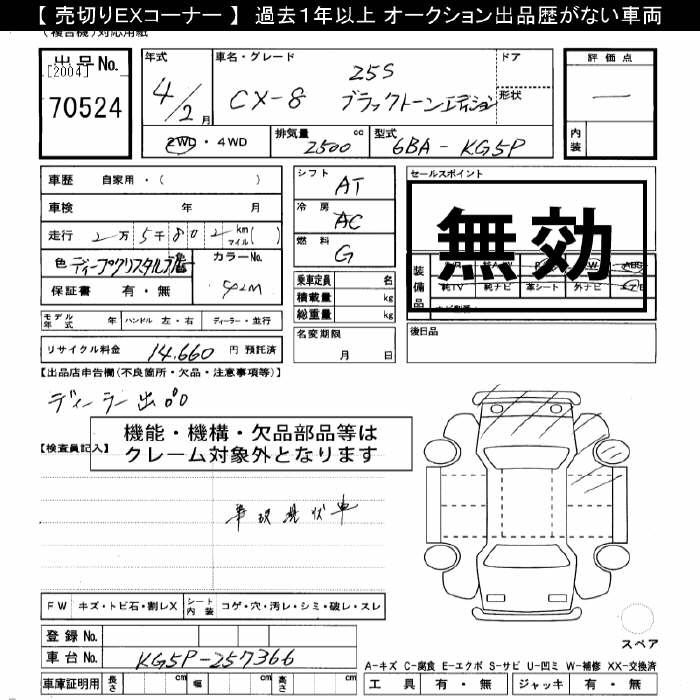 【 売切りEXコーナー 】 過去１年以上 オークション出品歴がない車両
(複合機)対応用紙
出品No.
[2004]
70524
年式
4/2月
車名・グレード
25S
CX-8 ブラックトーンエディション
ドア
形状
評価点
一
内装
2WD・4WD
排気量
2500 cc
型式
6BA - KG5P
車歴 自家用・( )
車検 年 月
走行 2万5千802 km マイル( )
色 ディープクリスタルブルー
カラーNo.
42M
保証書 有・無
モデル年式 年 ハンドル 左・右 ディーラー・並行
リサイクル料金 14,660 円 預託済
シフト AT
冷房 AC
燃料 G
乗車定員 名
積載量 kg
総重量 kg
名変期限
月 日
セールスポイント
無効
装備品
純TV 純ナビ 革シート 外ナビ エアB
後日品
【出品店申告欄(不良箇所・欠品・注意事項等)】
ディーラー出品
機能・機構・欠品部品等は
クレーム対象外となります
【検査員記入】
事故現状車
FW キズ・トビ石・割レX シート内装 コゲ・穴・汚レ・シミ・破レ・スレ
登録No.
車台No. KG5P-257366
車庫証明用 長さ cm 幅 cm 高さ cm
スペア
A-キズ C-腐食 E-エクボ S-サビ U-凹ミ W-補修 XX-交換済
工具 有・無 ジャッキ 有・無